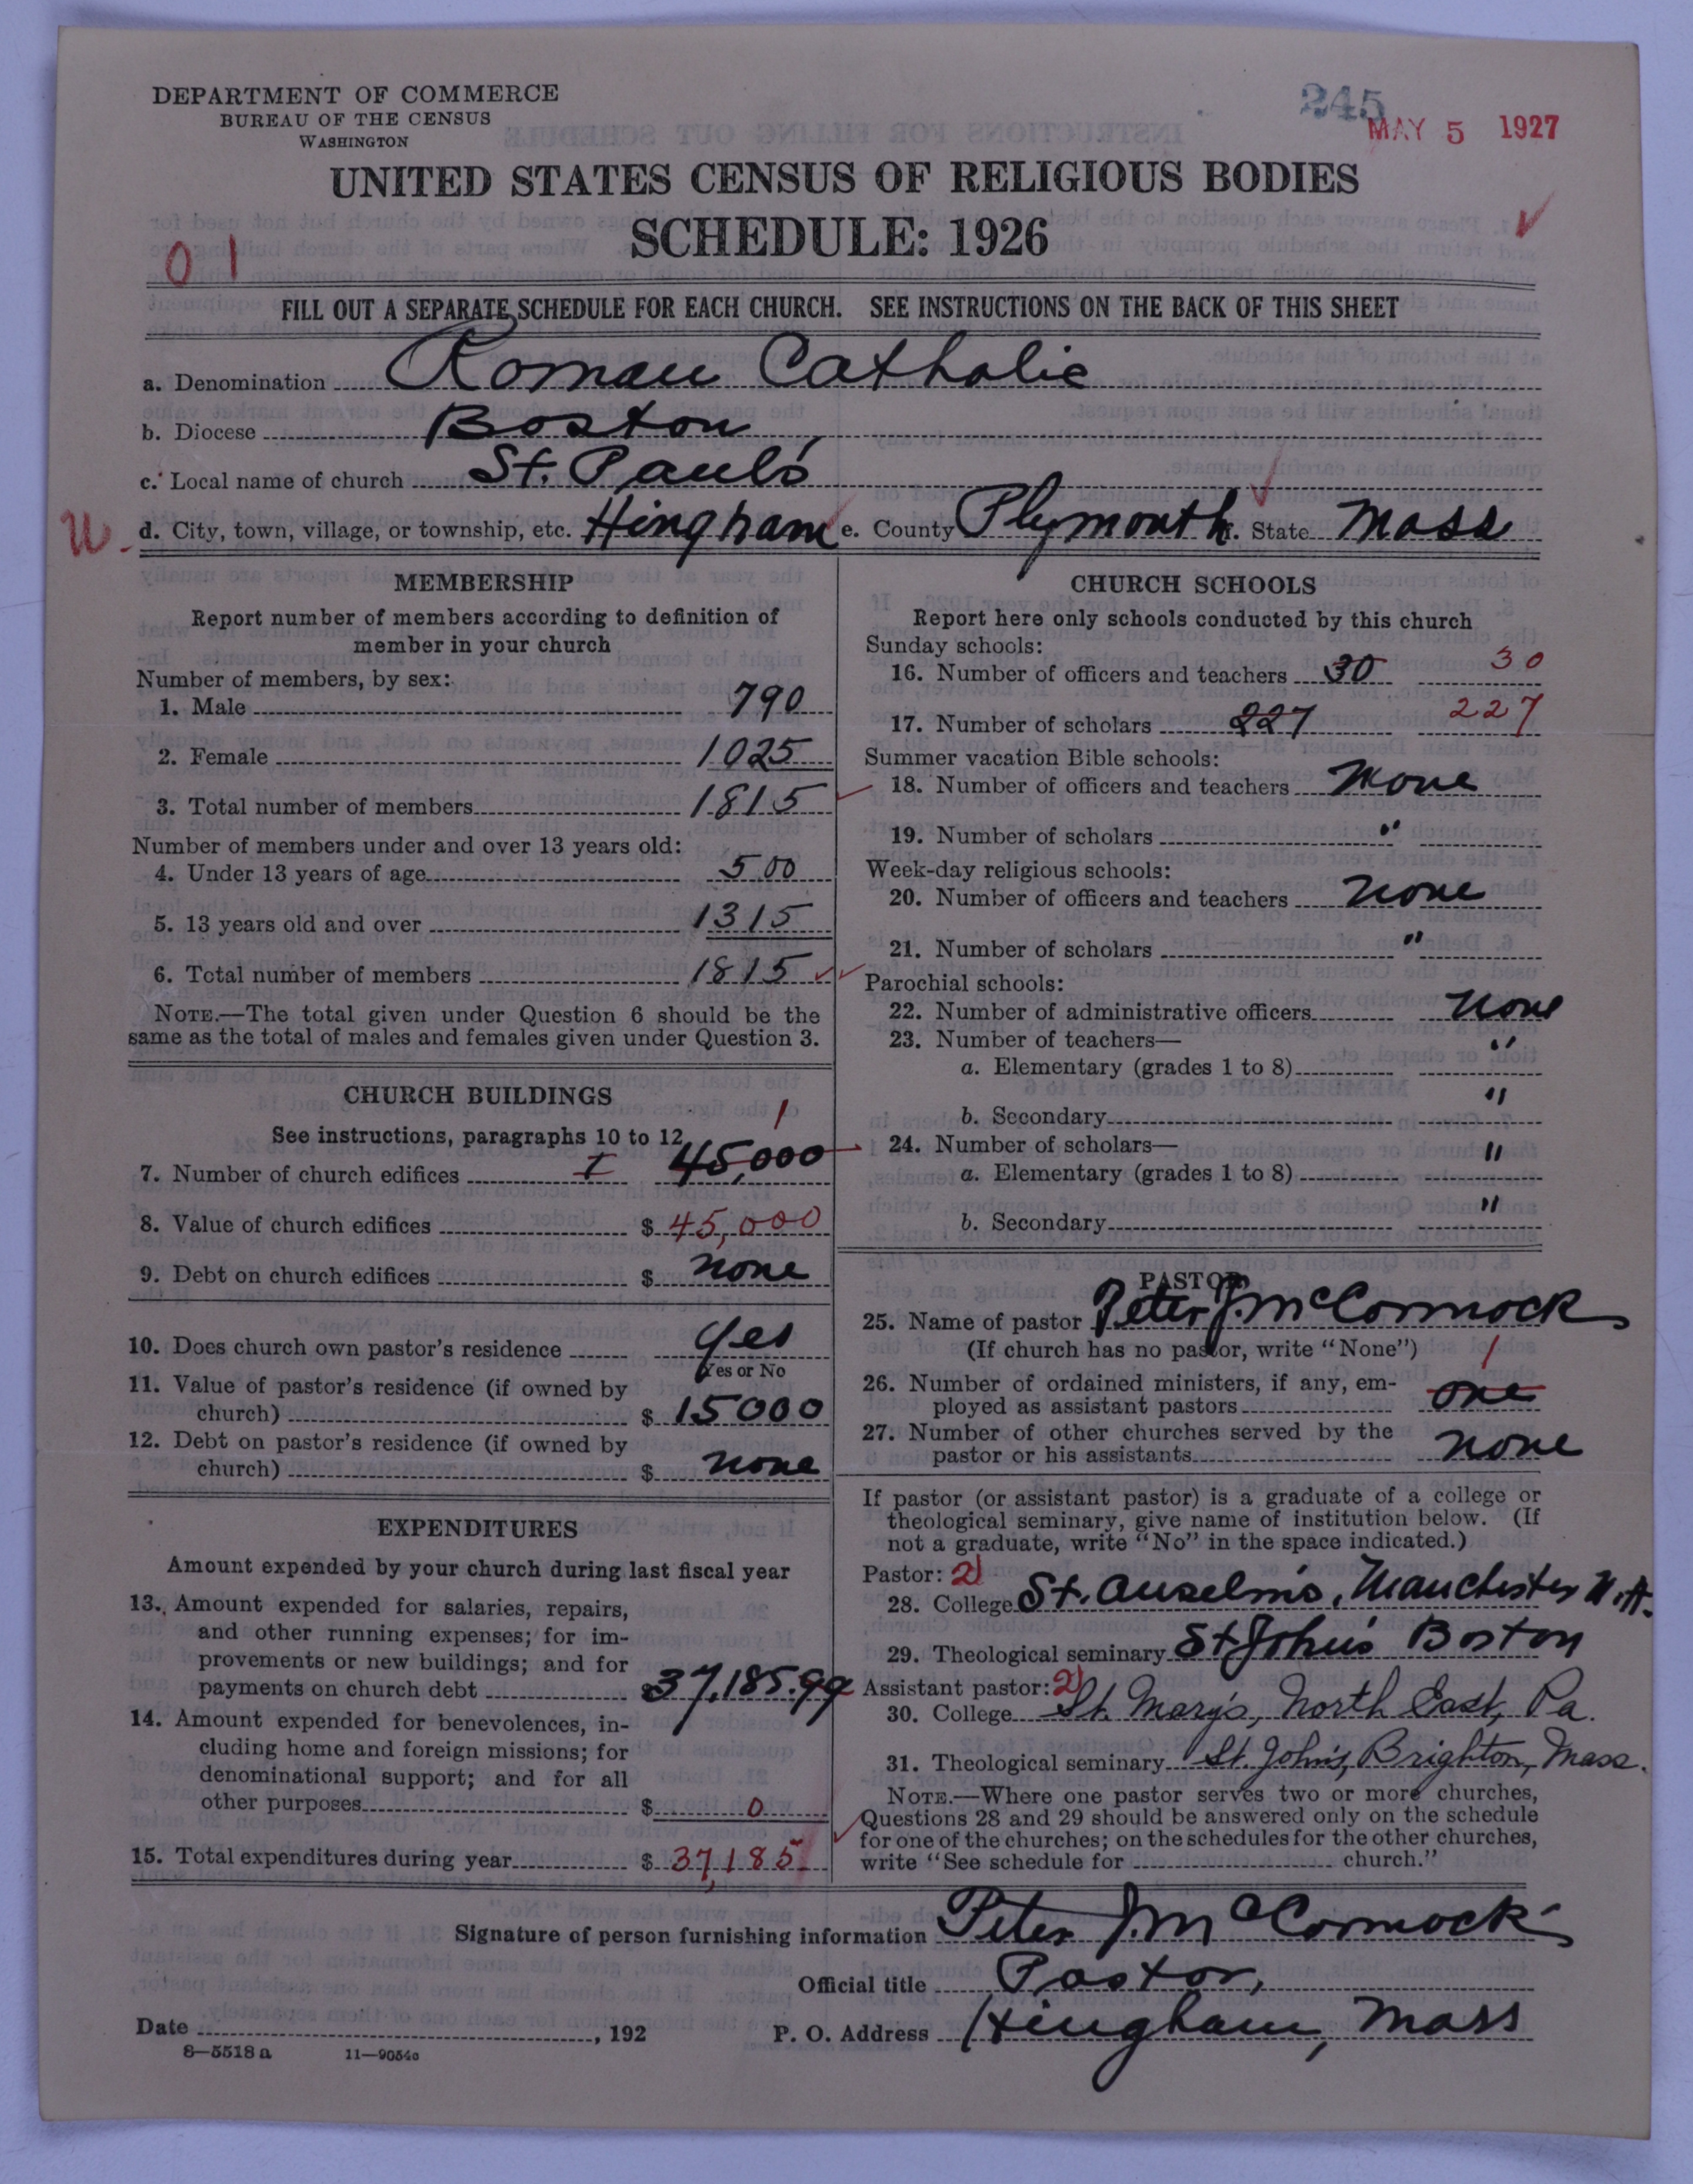 DEPARTMENT OF COMMERCE
BUREAU OF THE CENSUS
WASHINGTON
245
MAY 5 1927
UNITED STATES CENSUS OF RELIGIOUS BODIES
SCHEDULE: 1926
01
FILL OUT A SEPARATE SCHEDULE FOR EACH CHURCH. SEE INSTRUCTIONS ON THE BACK OF THIS SHEET
a. Denomination Roman Catholic
b. Diocese Boston,
c. Local name of church St. Paul's
d. City, town, village, or township, etc. Hingham e. County Plymouth f. State Mass
MEMBERSHIP
Report number of members according to definition of
member in your church
Number of members, by sex:
1. Male 790
2. Female 1025
3. Total number of members 1815
Number of members under and over 13 years old:
4. Under 13 years of age 500
5. 13 years old and over 1315
6. Total number of members 1815
NOTE.—The total given under Question 6 should be the
same as the total of males and females given under Question 3.
CHURCH BUILDINGS
See instructions, paragraphs 10 to 12
1
7. Number of church edifices I 45,000
8. Value of church edifices $ 45,000
9. Debt on church edifices $ none
10. Does church own pastor's residence Yes
Yes or No
11. Value of pastor's residence (if owned by
church) $ 15000
12. Debt on pastor's residence (if owned by
church) $ none
EXPENDITURES
Amount expended by your church during last fiscal year
13. Amount expended for salaries, repairs,
and other running expenses; for im-
provements or new buildings; and for
payments on church debt $ 37,185.99
14. Amount expended for benevolences, in-
cluding home and foreign missions; for
denominational support; and for all
other purposes $ 0
15. Total expenditures during year $ 37,185
CHURCH SCHOOLS
Report here only schools conducted by this church
Sunday schools:
16. Number of officers and teachers 30 30
17. Number of scholars 227 227
Summer vacation Bible schools:
18. Number of officers and teachers None
19. Number of scholars "
Week-day religious schools:
20. Number of officers and teachers none
21. Number of scholars "
Parochial schools:
22. Number of administrative officers none
23. Number of teachers— "
a. Elementary (grades 1 to 8)
b. Secondary "
24. Number of scholars— "
a. Elementary (grades 1 to 8)
b. Secondary "
PASTOR
25. Name of pastor Peter J. McCormack
(If church has no pastor, write "None") 1
26. Number of ordained ministers, if any, em-
ployed as assistant pastors one
27. Number of other churches served by the
pastor or his assistants none
If pastor (or assistant pastor) is a graduate of a college or
theological seminary, give name of institution below. (If
not a graduate, write "No" in the space indicated.)
Pastor: 2
28. College St. Anselm's, Manchester N.H.
29. Theological seminary St John's Boston
Assistant pastor: 2
30. College St. Mary's, North East, Pa.
31. Theological seminary St. John's, Brighton, Mass.
NOTE.—Where one pastor serves two or more churches,
Questions 28 and 29 should be answered only on the schedule
for one of the churches; on the schedules for the other churches,
write "See schedule for church."
Signature of person furnishing information Peter J. McCormack
Official title Pastor,
Date , 192
P. O. Address Hingham, Mass
8—5518 a 11—9054a